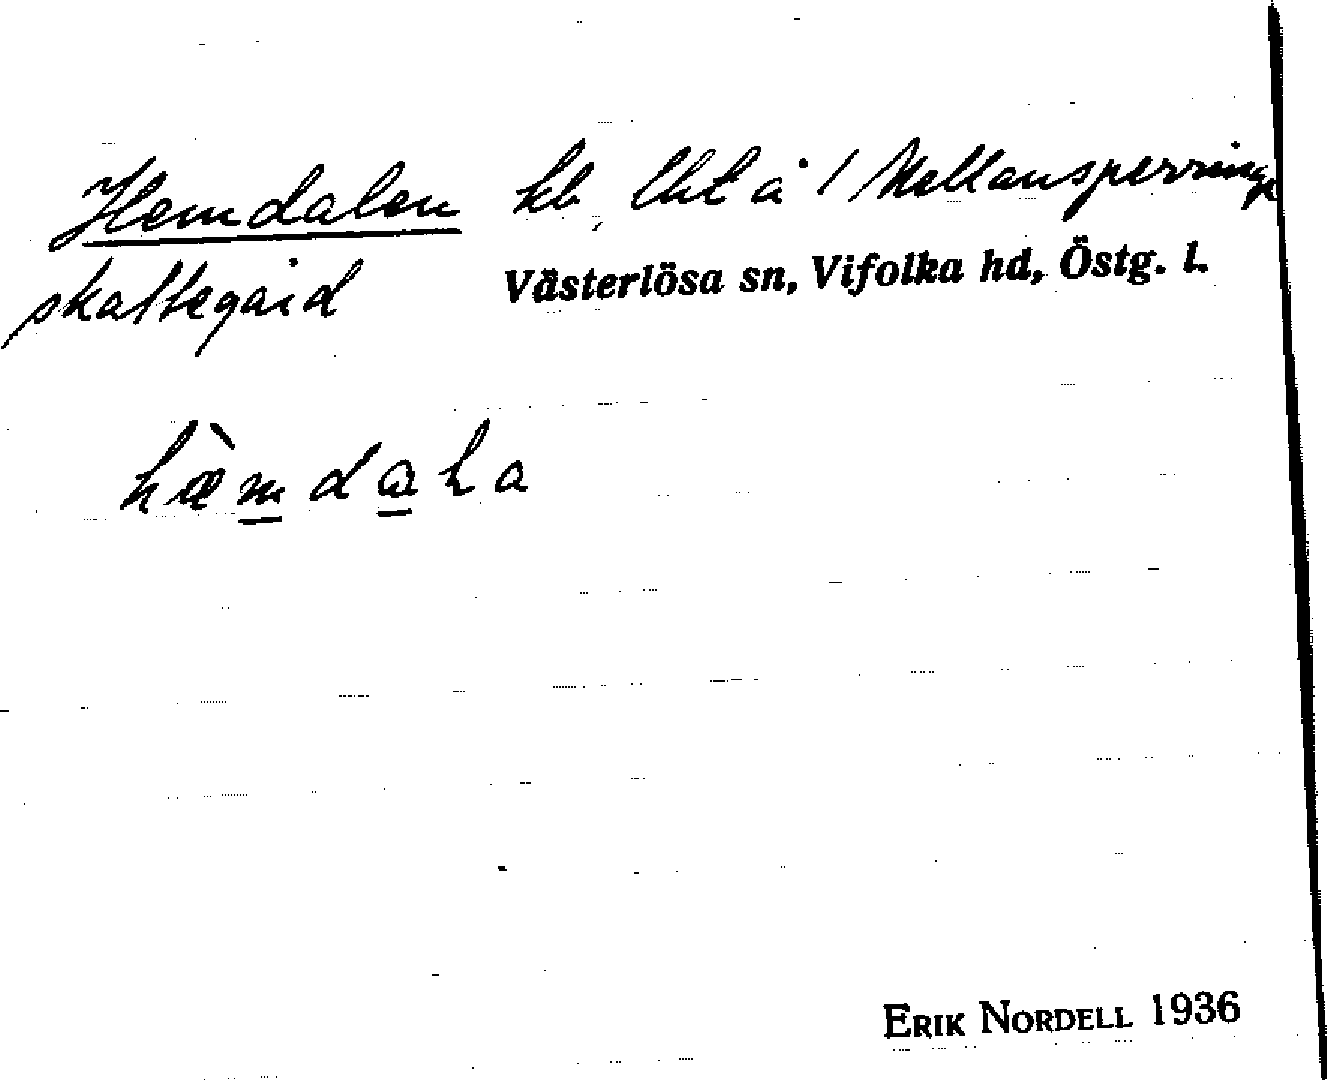 Hemdalen hb, lht å 1 Mellansperringe
skattegård
Västerlösa sn, Vifolka hd, Östg. l.
hæ̀mdaha
ERIK NORDELL 1936